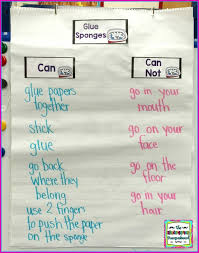 Glue
Sponges
Can
Can
Not
glue papers
together
stick
glue
go back
where they
belong
use 2 fingers
to push the paper
on the sponge
go in your
mouth
go on your
face
go on the
floor
go in your
hair